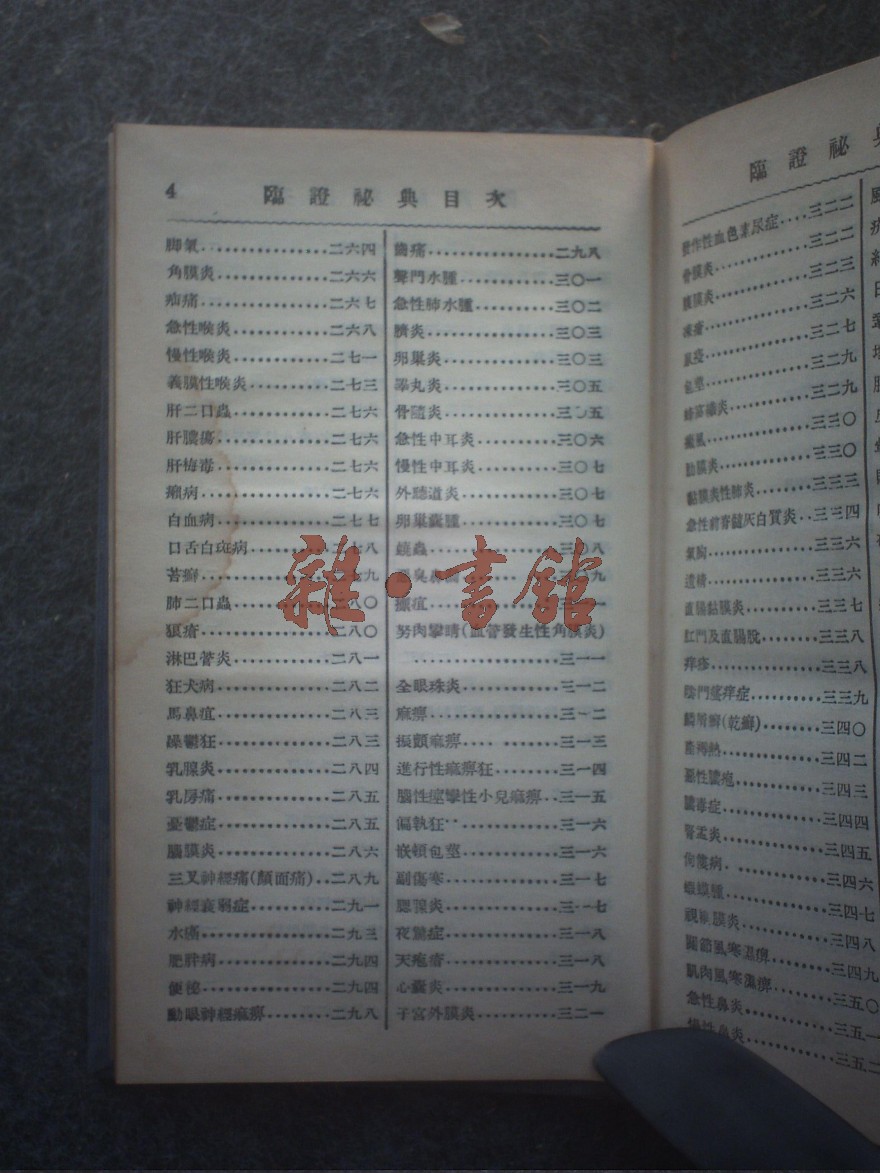 4 臨證祕典目次
脚氣................二六四
角膜炎..............二六六
疝痛................二六七
急性喉炎............二六八
慢性喉炎............二七一
義膜性喉炎..........二七三
肝二口蟲............二七六
肝膿瘍..............二七六
肝梅毒..............二七六
癩病................二七六
白血病..............二七七
口舌白斑病..........二七八
苔癬
肺二口蟲............二八〇
狼瘡................二八〇
淋巴管炎............二八一
狂犬病..............二八二
馬鼻疽..............二八三
躁鬱狂..............二八三
乳腺炎..............二八四
乳房痛..............二八五
憂鬱症..............二八五
腦膜炎..............二八六
三叉神經痛(顏面痛)..二八九
神經衰弱症..........二九一
水癌................二九三
肥胖病..............二九四
便祕................二九四
動眼神經痲痹........二九八
齒痛................二九八
聲門水腫............三〇一
急性肺水腫..........三〇二
臍炎................三〇三
卵巢炎..............三〇三
睾丸炎..............三〇五
骨髓炎
急性中耳炎..........三〇六
慢性中耳炎..........三〇七
外聽道炎............三〇七
卵巢囊腫............三〇七
蟯蟲
瘭疽
努肉攀睛(血管發生性角膜炎)
....................三一一
全眼球炎............三一二
麻痹................三一二
振顫麻痹............三一三
進行性麻痹狂........三一四
腦性痙攣性小兒麻痹..三一五
偏執狂..............三一六
嵌頓包莖............三一六
副傷寒..............三一七
腮腺炎..............三一七
夜驚症..............三一八
天疱瘡..............三一八
心囊炎..............三一九
子宮外膜炎..........三二一
臨證祕
發作性血色素尿症....三二二
骨膜炎..............三二二
腹膜炎..............三二三
凍瘡................三二六
鼠疫................三二七
三二九
蜂窩織炎............三二九
癜風................三三〇
肋膜炎..............三三〇
黏膜炎性肺炎........三三三
急性前脊髓灰白質炎..三三四
氣胸................三三六
遺精................三三六
直腸黏膜炎..........三三七
肛門及直腸脫........三三八
痒疹................三三八
陰門瘙痒症..........三三九
鱗屑癬(乾癬)........三四〇
產褥熱..............三四二
惡性膿疱............三四三
膿毒症..............三四四
腎盂炎..............三四五
佝僂病..............三四六
蝦蟆腫..............三四七
視網膜炎............三四八
關節風寒濕痹........三四九
肌肉風寒濕痹........三五〇
急性鼻炎............三五一
慢性鼻炎............三五二
雜·書館